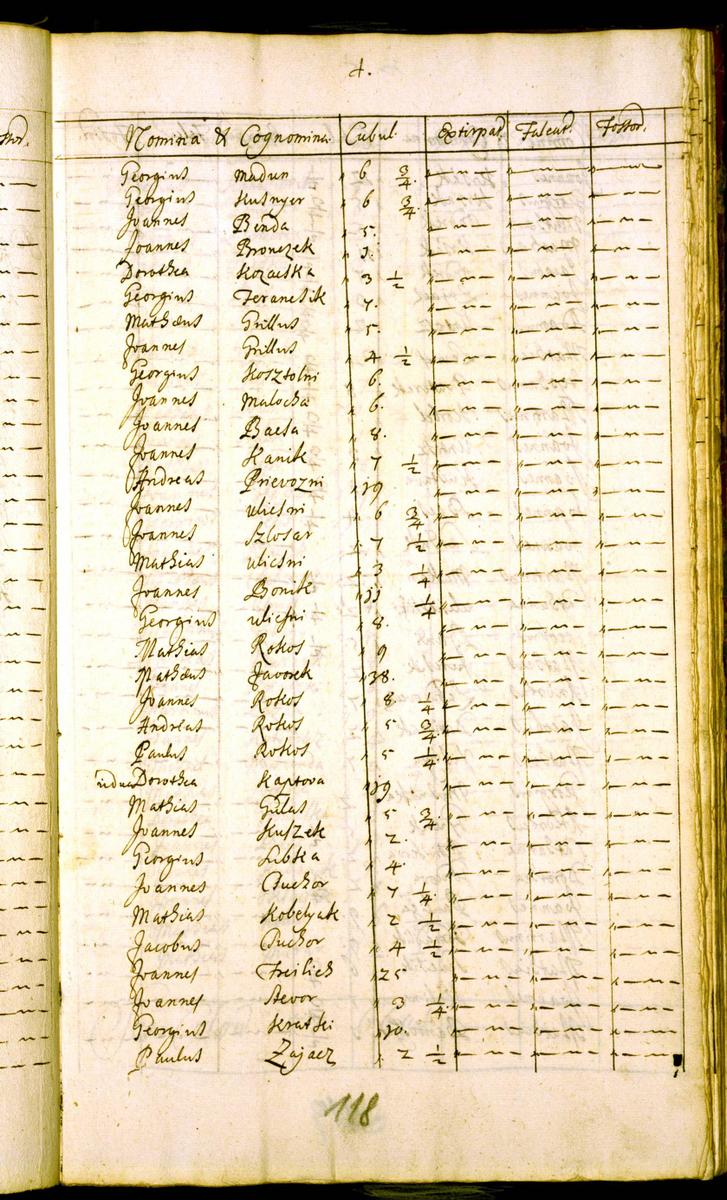 4.
Nomina & Cognomina Cubul. Extirpat. Falcat. Fossor.
Georgius Madun " 6 3/4. " — " — " — " — " — " —
Georgius Kusnyer " 6 3/4. " — " — " — " — " — " —
Joannes Benda " 5. " — " — " — " — " — " —
Joannes Bronczek " " — " — " — " — " — " —
Dorothea " 3 1/2 " — " — " — " — " — " —
Georgius " 7. " — " — " — " — " — " —
Mathæus Grillus " 5. " — " — " — " — " — " —
Joannes Grillus " 4 1/2 " — " — " — " — " — " —
Georgius Kosztolni " 6. " — " — " — " — " — " —
Joannes Malocha " 6. " — " — " — " — " — " —
Joannes " 8. " — " — " — " — " — " —
Joannes Kanik " 7 1/2 " — " — " — " — " — " —
Andreas Prievozni " 19. " — " — " — " — " — " —
Joannes Ulicsni " 6 3/4 " — " — " — " — " — " —
Joannes Szlosar " 7 1/2 " — " — " — " — " — " —
Mathias Ulicsni " 3 1/4 " — " — " — " — " — " —
Joannes Bonik " 11 1/4 " — " — " — " — " — " —
Georgius Ulicsni " 8. " — " — " — " — " — " —
Mathias Rokos " 9 " — " — " — " — " — " —
Mathæus Javorek " 38. " — " — " — " — " — " —
Joannes Rokos " 8 1/4 " — " — " — " — " — " —
Andreas Rokos " 5 3/4 " — " — " — " — " — " —
Paulus Rokos " 5 1/4 " — " — " — " — " — " —
idua Dorothea Kaptova " 19. " — " — " — " — " — " —
Mathias Gulas " 5 3/4 " — " — " — " — " — " —
Joannes Kuszek " 2. " — " — " — " — " — " —
Georgius Libka " 4. " — " — " — " — " — " —
Joannes Duchor " 7 1/4 " — " — " — " — " — " —
Mathias Kobelyak " 2 1/2 " — " — " — " — " — " —
Jacobus Duchor " 4 1/2 " — " — " — " — " — " —
Joannes Freilich " 25 " — " — " — " — " — " —
Joannes " 3 1/4 " — " — " — " — " — " —
Georgius Kratki " 10. " — " — " — " — " — " —
Paulus Zajacz " 2 1/2 " — " — " — " — " — " —
118